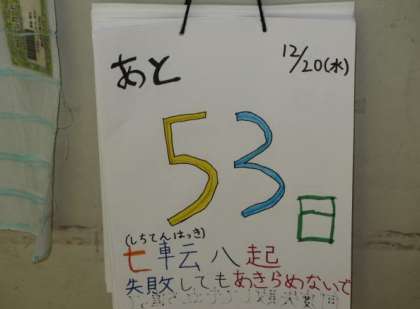 あと
12/20(水)
53日
(しちてんはっき)
七転八起
失敗してもあきらめないで